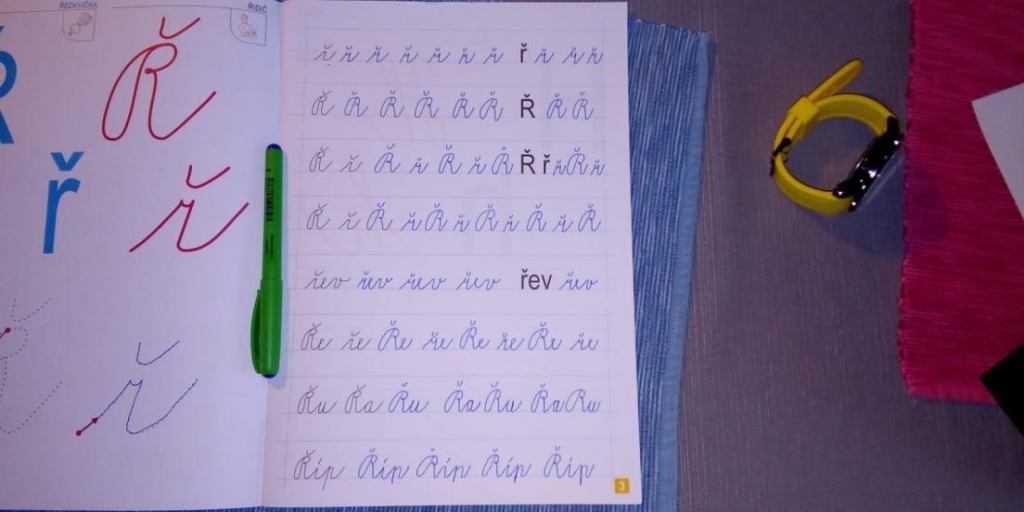 ŘEDKVIČKA
ŘIDIČ
Ř
ř
ř
ř
ř ř ř ř ř ř ř ř ř ř ř
Ř Ř Ř Ř Ř Ř Ř Ř Ř
Ř ř Ř ř Ř ř Ř Ř ř ř Ř ř
Ř ř Ř ř Ř ř Ř ř Ř ř Ř
řev řev řev řev řev řev
Ře ře Ře ře Ře ře Ře ře
Řu Řa Řu Řa Řu Řa Řu
Říp Říp Říp Říp Říp
3